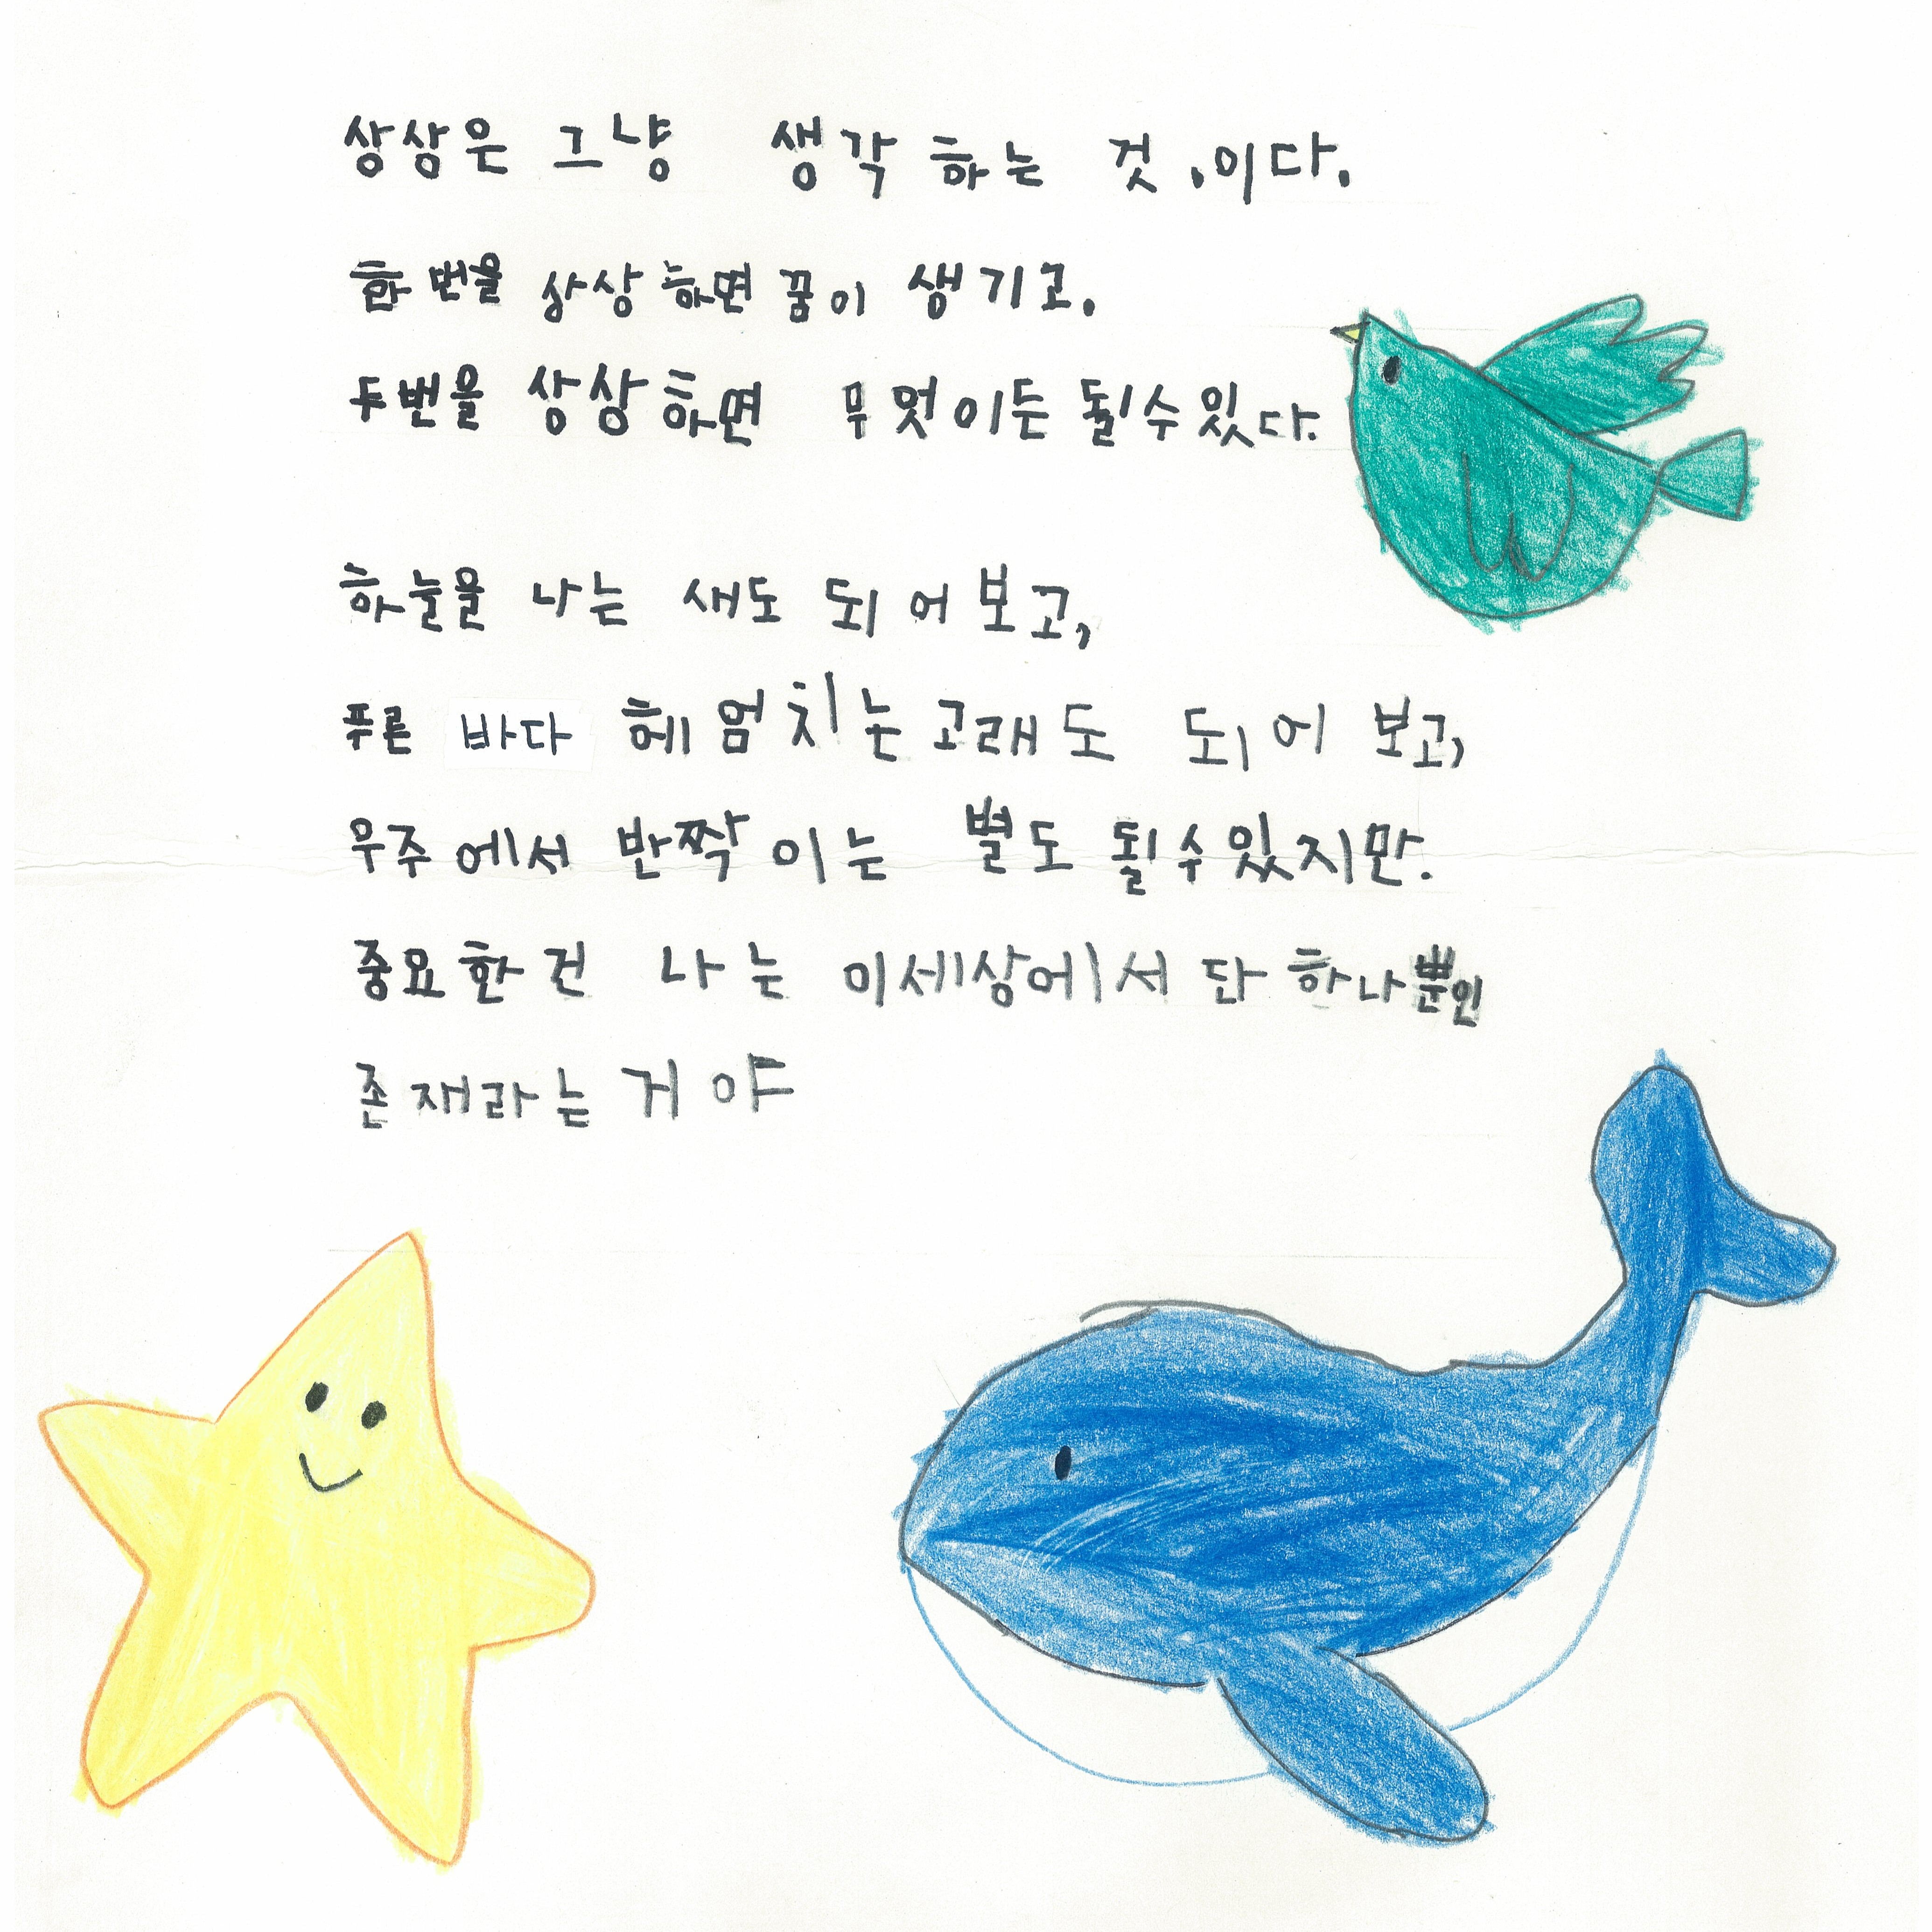 상상은 그냥 생각 하는 것 .이다.
한 번을 상상 하면 꿈이 생기고.
두번을 상상하면 무엇이든 될수있다.
하늘을 나는 새도 되어보고,
푸른 바다 헤엄치는 고래도 되어 보고,
우주에서 반짝이는 별도 될수있지만.
중요한건 나는 이세상에서 단 하나뿐인
존재라는 거야